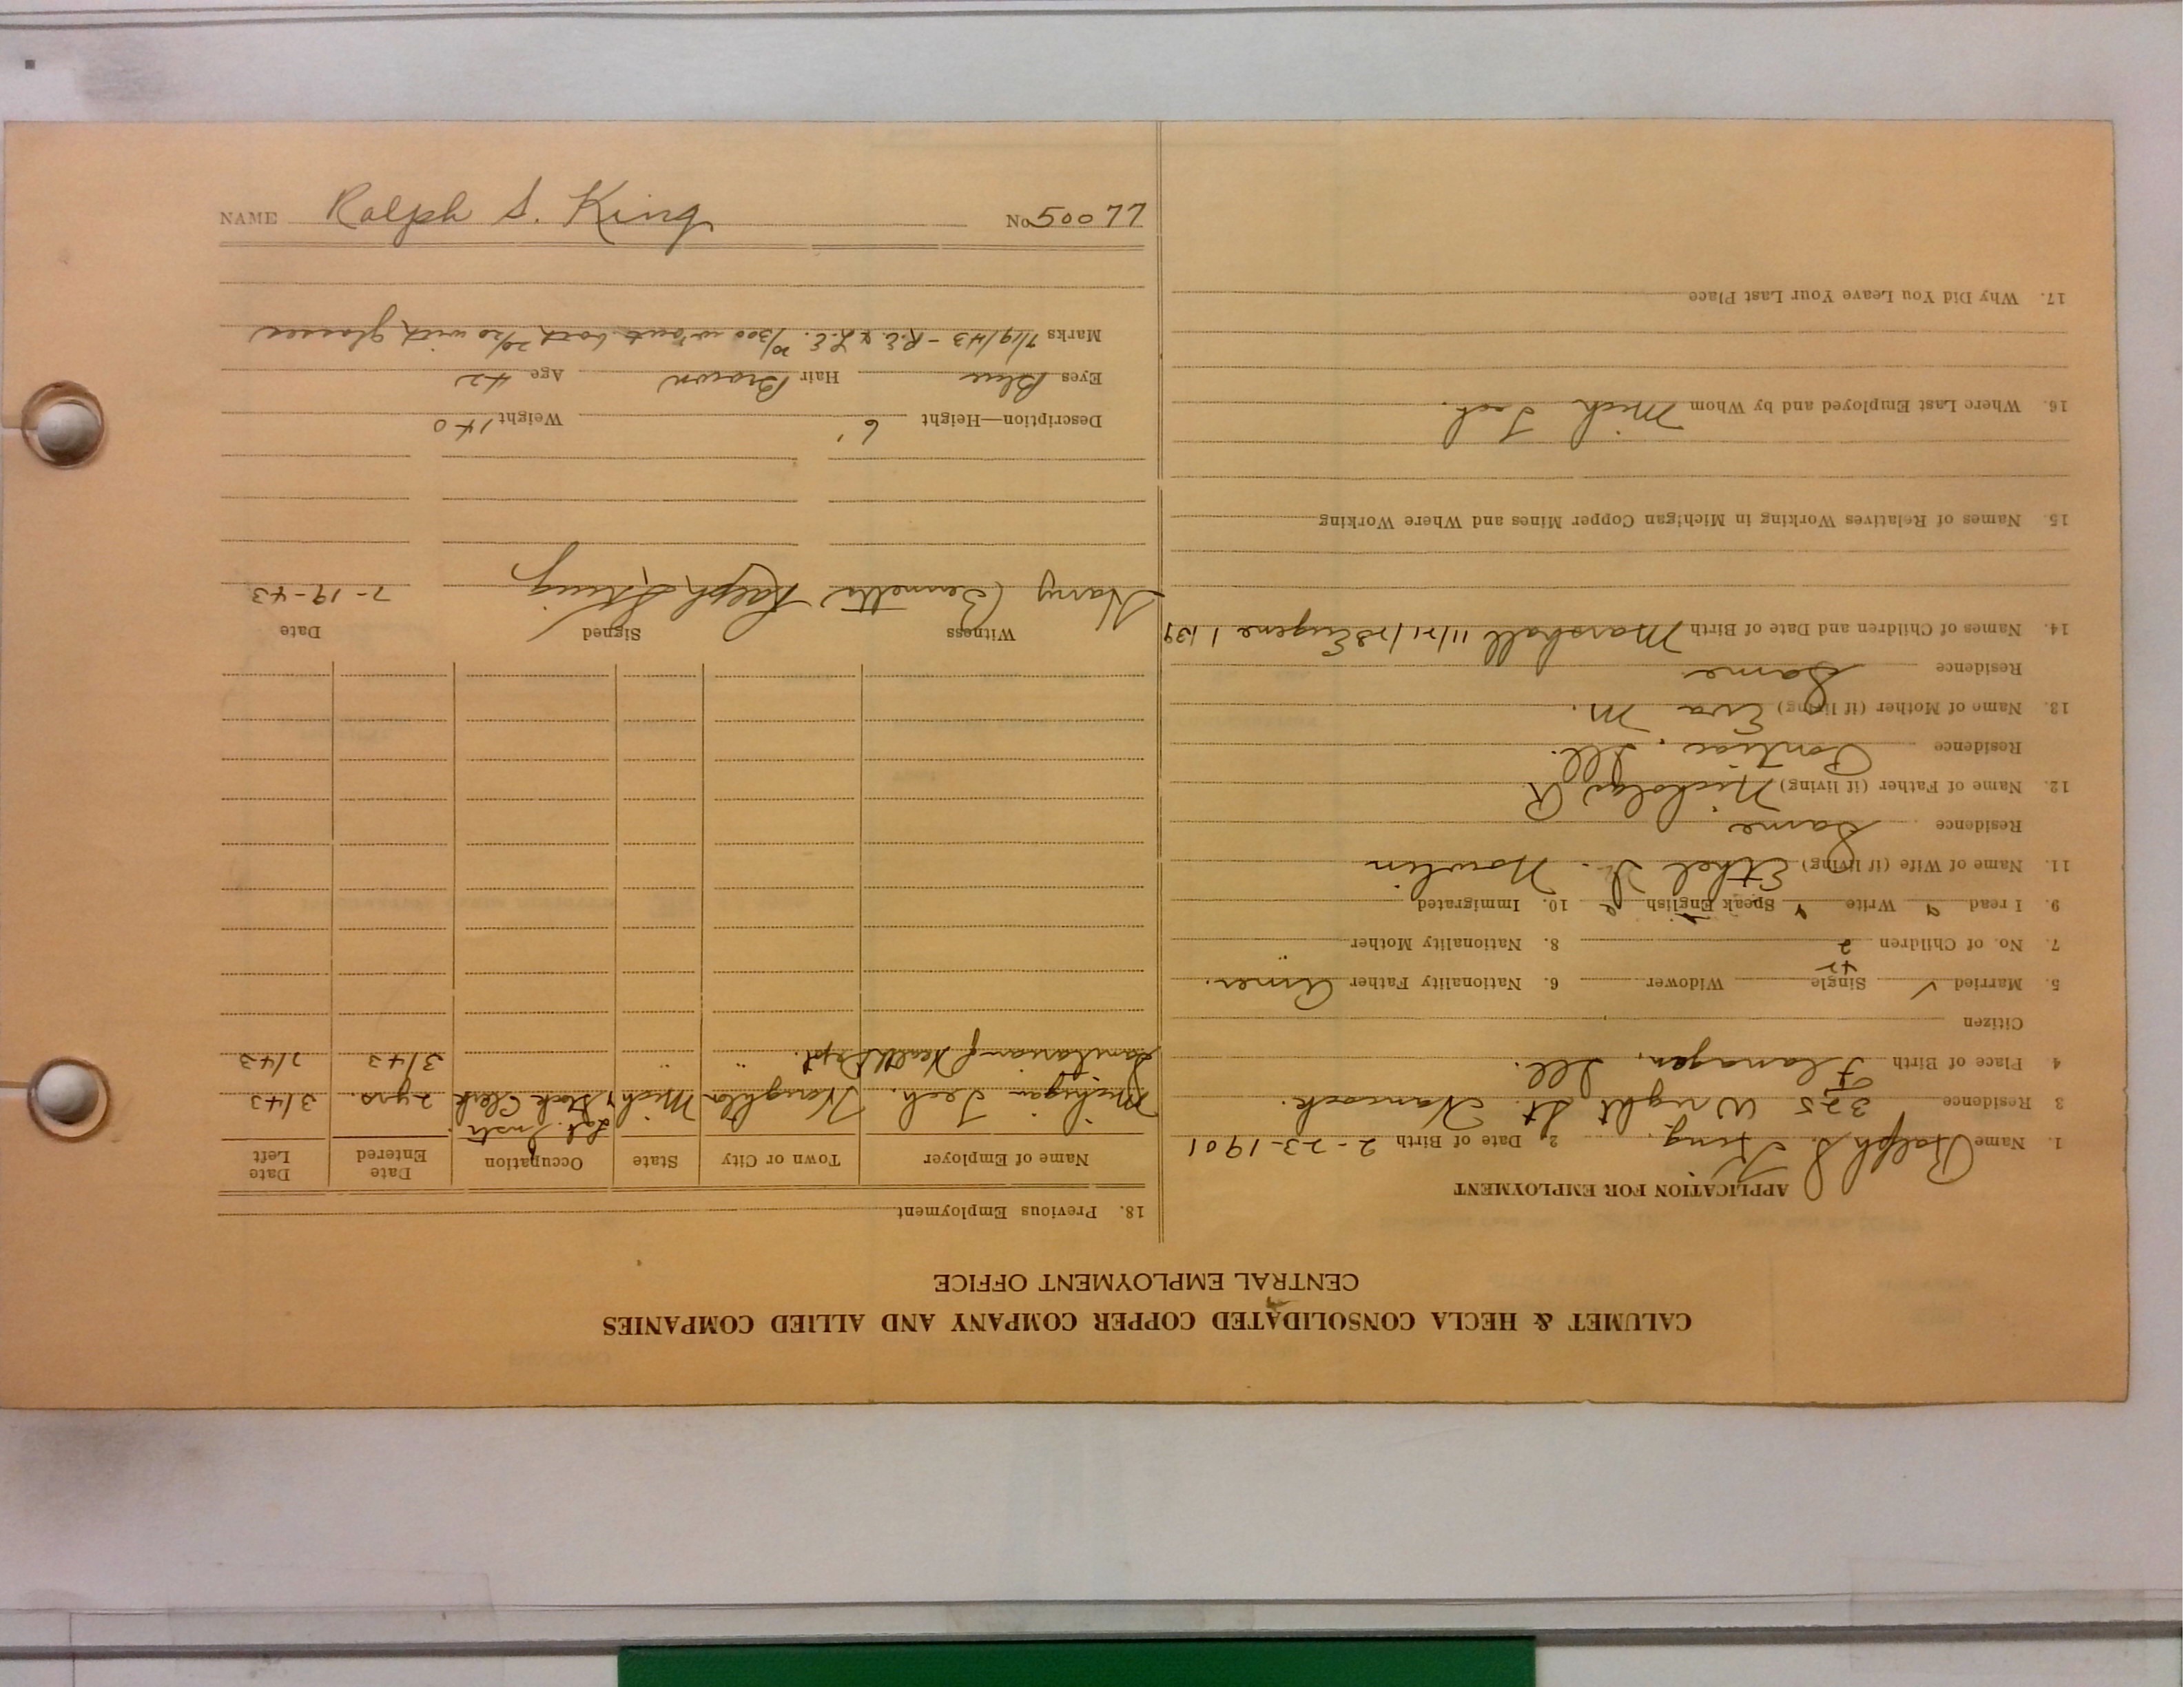 CALUMET & HECLA CONSOLIDATED COPPER COMPANY AND ALLIED COMPANIES
CENTRAL EMPLOYMENT OFFICE
APPLICATION FOR EMPLOYMENT
1. Name Ralph S. King. 2. Date of Birth 2-23-1901
3 Residence 325 Wright St. Hancock.
4 Place of Birth Flanagan, Ill.
Citizen
5. Married ✓ Single Widower 6. Nationality Father Amer.
7. No. of Children 2 8. Nationality Mother "
9. I read Write Speak English 10. Immigrated
11. Name of Wife (if living) Ethel Nowlin
Residence Same
12. Name of Father (if living) Nicholas R
Residence Pontiac, Ill.
13. Name of Mother (if living) Eva M.
Residence Same
14. Names of Children and Date of Birth Marshall 11/21/28 Eugene 1/39
15. Names of Relatives Working in Michigan Copper Mines and Where Working
16. Where Last Employed and by Whom Mich Tech.
17. Why Did You Leave Your Last Place
18. Previous Employment
Name of Employer Town or City State Occupation Date Entered Date Left
Michigan Tech. Houghton Mich Lab. Instr. & Stock Clerk 2 yrs. 3/43
Sanitarian of Health Dept. " " 3/43 7/43
Witness Signed Date
Harry Bennetts Ralph S. King 7-19-43
Description—Height 6' Weight 140
Eyes Blue Hair Brown Age 42
Marks 7/19/43 - R.E. & L.E. 20/300 w'out both 20/20 with glasses
NAME Ralph S. King No. 50077